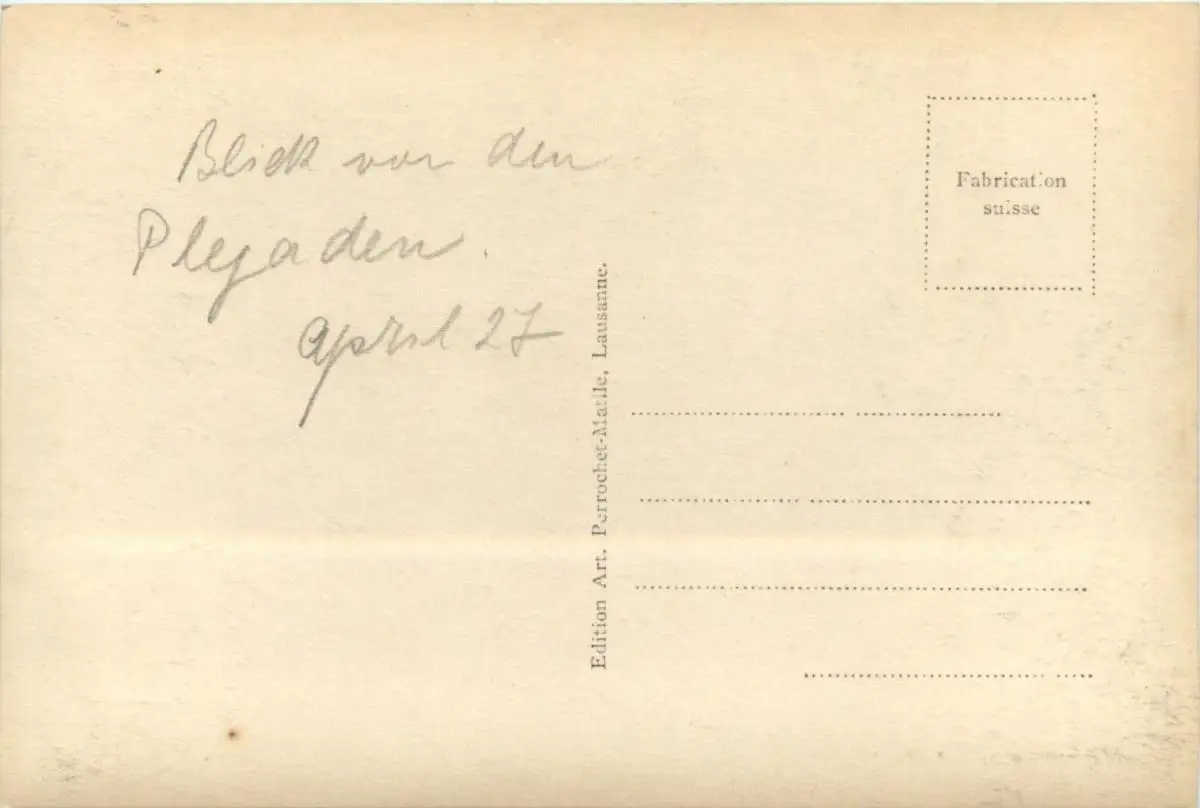 Blick von den
Plejaden.
April 27
Fabrication
suisse
Edition Art. Perrochet-Matile, Lausanne.